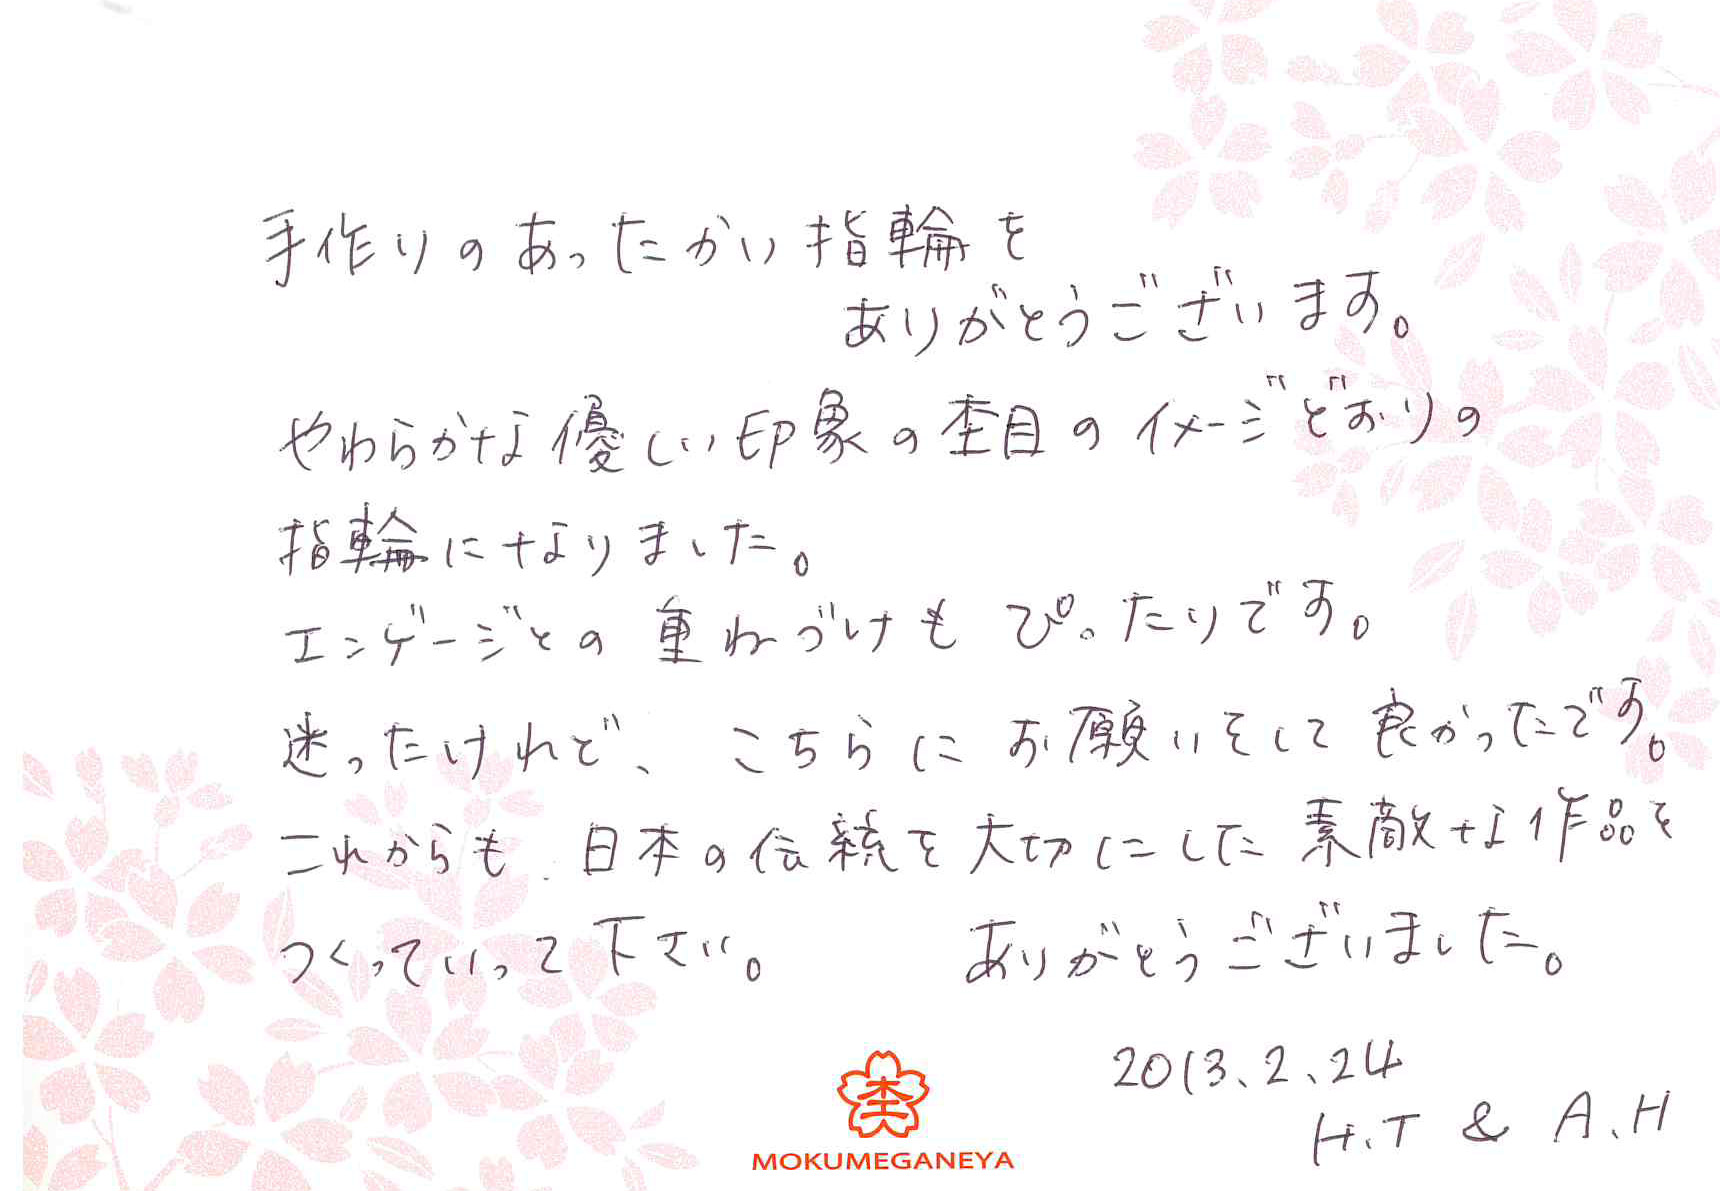 手作りのあったかい指輪を
ありがとうございます。
やわらかな優しい印象の杢目のイメージどおりの
指輪になりました。
エンゲージとの重ねづけもぴったりです。
迷ったけれど、こちらにお願いをして良かったです。
これからも日本の伝統を大切にした素敵な作品を
つくっていって下さい。 ありがとうございました。
2013、2、24
H.T & A.H
杢
MOKUMEGANEYA